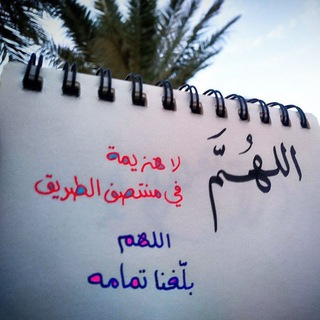 اللهُمَّ
لا هزيمة
في منتصف الطريق
اللهم
بلّغنا تمامه